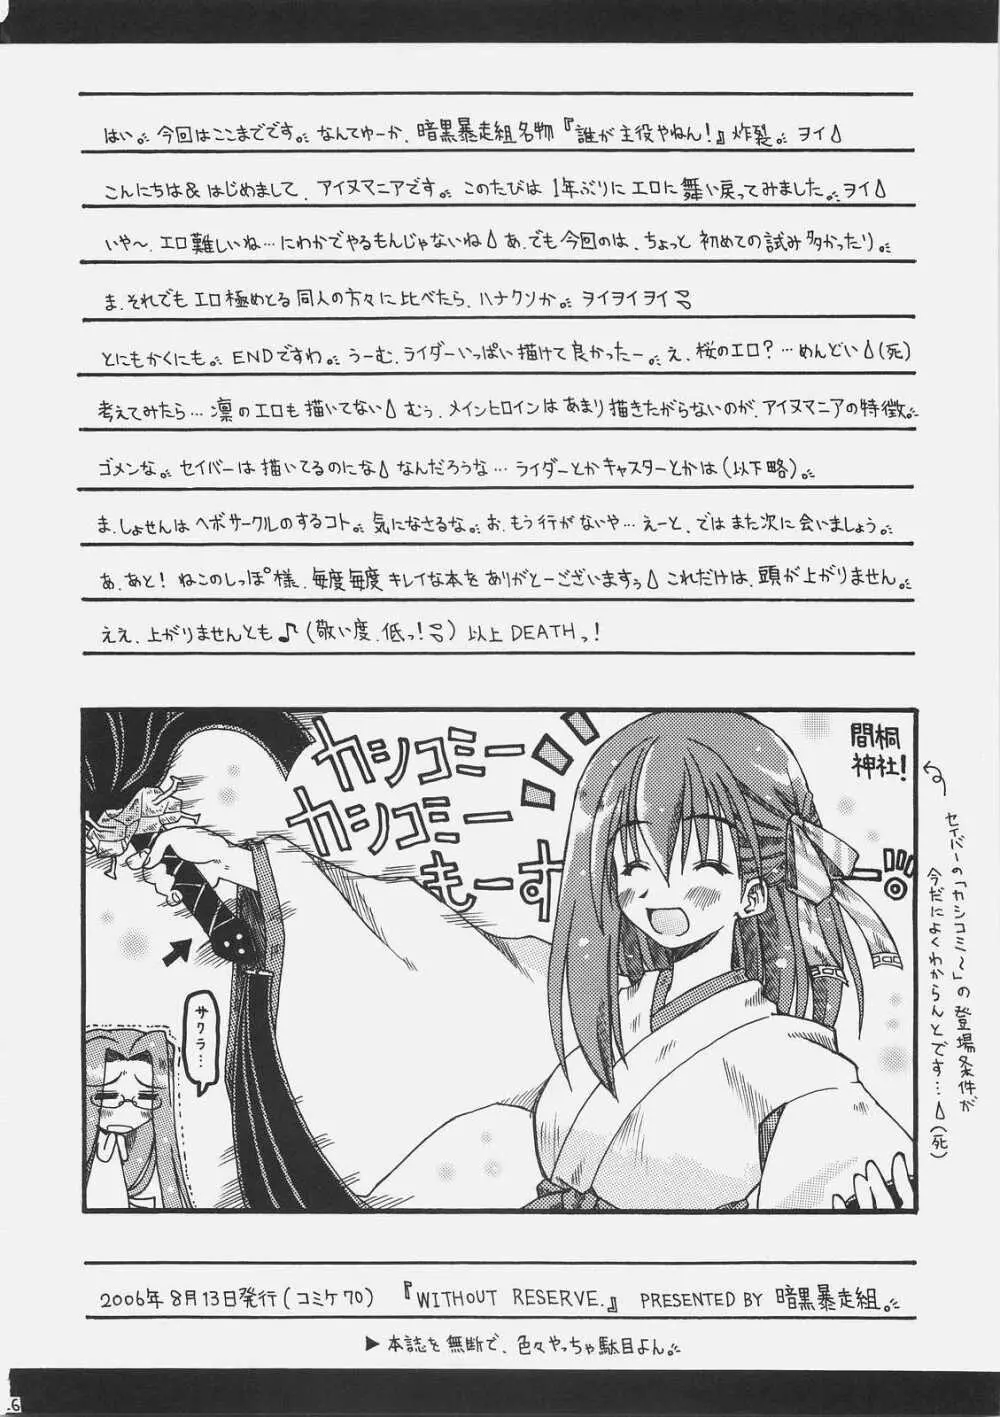 はい。今回はここまでです。なんてゆーか、暗黒暴走組名物『誰が主役やねん!』炸裂。ヲイ
こんにちは&はじめまして、アイヌマニアです。このたびは1年ぶりにエロに舞い戻ってみました。ヲイ
いや〜、エロ難しいね…にわかでやるもんじゃないね あ、でも今回のは、ちょっと初めての試み多かったり。
ま、それでもエロ極めとる同人の方々に比べたら、ハナクソか。ヲイヲイヲイ
とにもかくにも。ENDですわ。うーむ、ライダーいっぱい描けて良かったー。え、桜のエロ?…めんどい(死)
考えてみたら…凛のエロも描いてない むぅ、メインヒロインはあまり描きたがらないのが、アイヌマニアの特徴。
ゴメンな。セイバーは描いてるのにな なんだろうな…ライダーとかキャスターとかは(以下略)。
ま、しょせんはヘボサークルのするコト。気になさるな。お、もう行がないや…えーと、ではまた次に会いましょう。
あ、あと!ねこのしっぽ様、毎度毎度キレイな本をありがとーございますっ これだけは、頭が上がりません。
ええ、上がりませんとも♪(敬い度、低っ!)以上DEATHっ!
カシコミー
カシコミー
もーす
間桐
神社!
セイバーの「カシコミ〜」の登場条件が
今だによくわからんとです…(死)
サクラ…
2006年8月13日発行(コミケ70) 『WITHOUT RESERVE.』 PRESENTED BY 暗黒暴走組。
▶本誌を無断で、色々やっちゃ駄目よん。
6